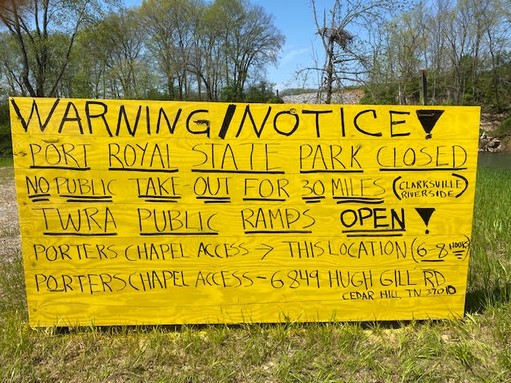 WARNING/NOTICE!
PORT ROYAL STATE PARK CLOSED
NO PUBLIC TAKE-OUT FOR 30 MILES (CLARKSVILLE RIVERSIDE)
TWRA PUBLIC RAMPS OPEN!
PORTERS CHAPEL ACCESS → THIS LOCATION (6-8 HOUR)
PORTERS CHAPEL ACCESS - 6849 HUGH GILL RD
CEDAR HILL, TN 37010